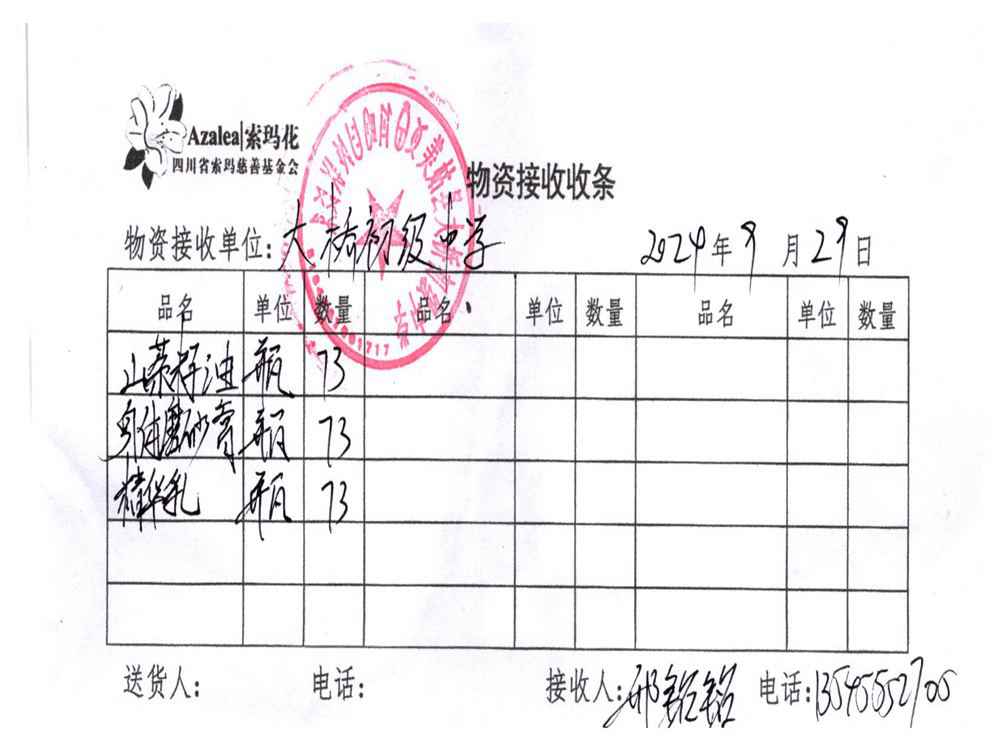 Azalea|索玛花
四川省索玛慈善基金会
物资接收收条
物资接收单位:大桥初级中学 2024年9月29日
品名 单位 数量 品名 单位 数量 品名 单位 数量
山茶籽油 瓶 73
身体磨砂膏 瓶 73
精华乳 瓶 73
送货人: 电话: 接收人: 电话:13545552705